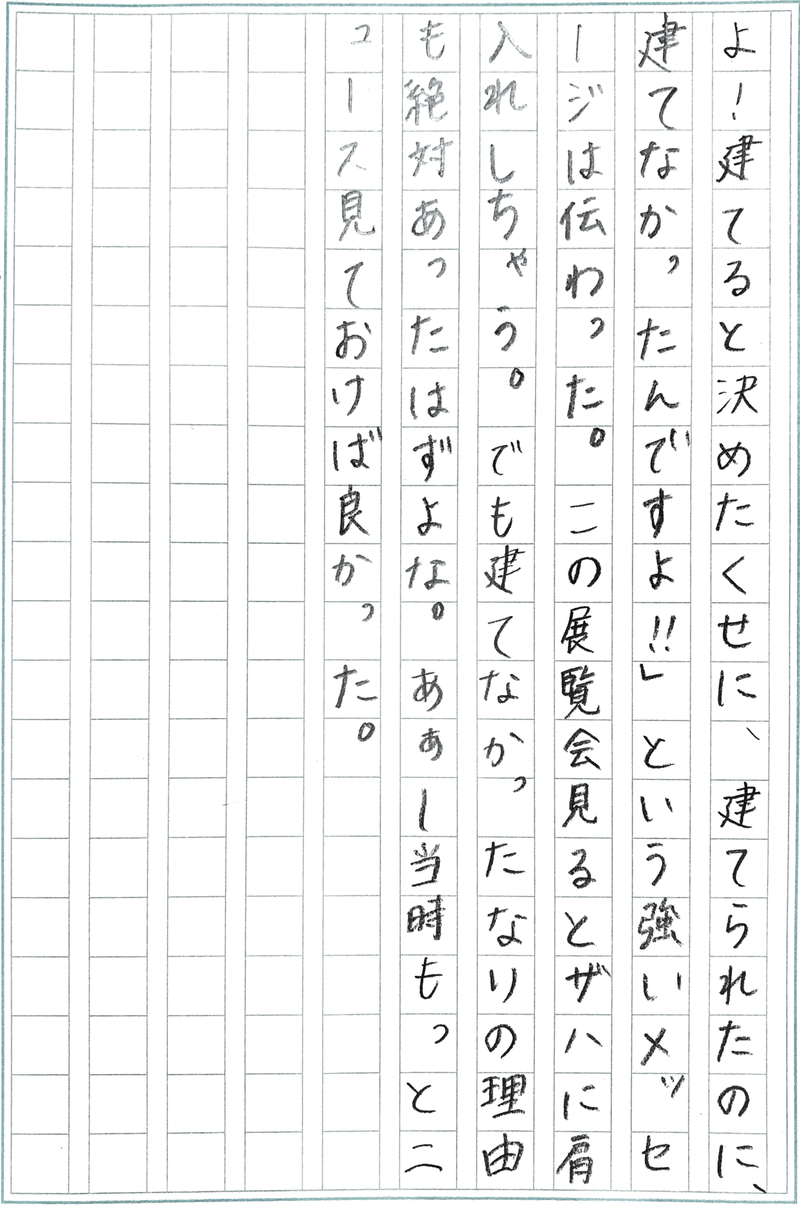 よ！建てると決めたくせに、建てられたのに、
建てなかったんですよ!!」という強いメッセ
ージは伝わった。この展覧会見るとザハに肩
入れしちゃう。でも建てなかったなりの理由
も絶対あったはずよな。あぁー当時もっとニ
ュース見ておけば良かった。